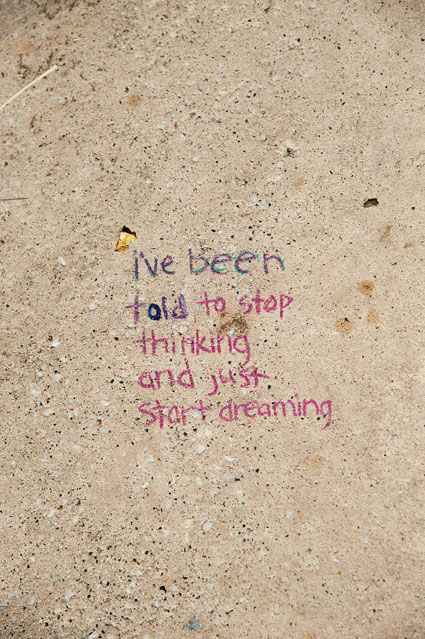 i've been
told to stop
thinking
and just
start dreaming